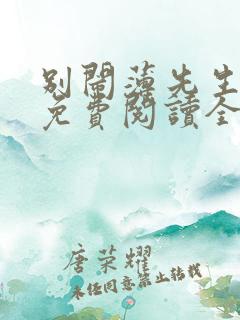 别闹薄先生
免費閱讀全
唐荣耀
未经同意禁止转载